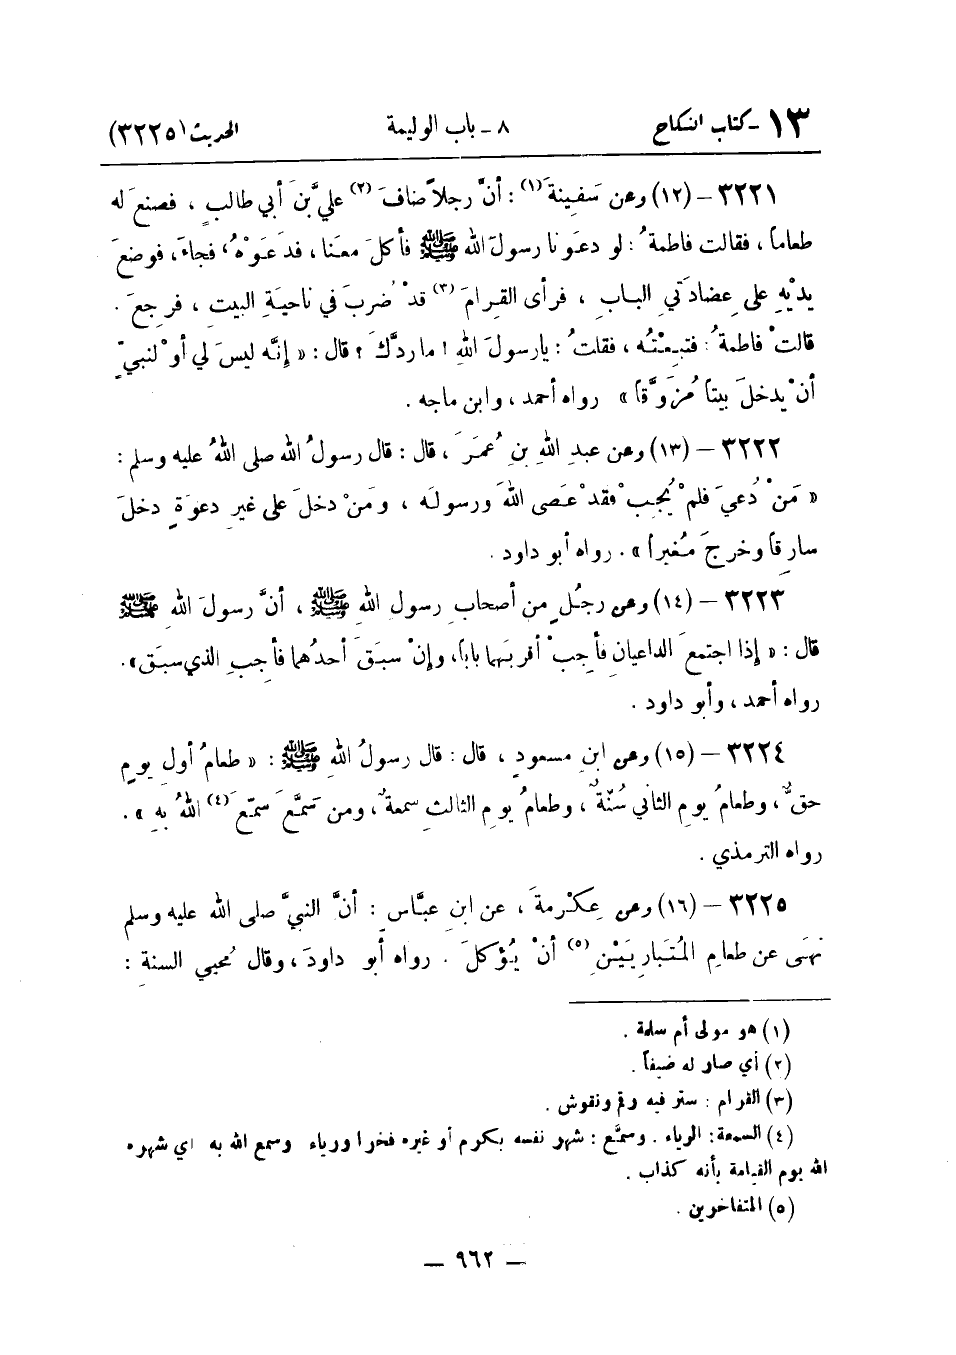 ١٣ - كتاب النكاح ٨ - باب الوليمة الحديث (٣٢٢٥)
٣٢٢١ - (١٢) وعن سَفِينةَ(١) : أنَّ رجلاً ضافَ(٢) عليَّ بنَ أبي طالبٍ ، فصنعَ له
طعاماً ، فقالت فاطمةُ : لو دعَونا رسولَ الله ﷺ فأكلَ معَنا ، فدعَوْهُ ، فجاءَ ، فوضعَ
يدَيْهِ على عِضادَتي البابِ ، فرأى القِرامَ(٣) قدْ ضُربَ في ناحيَةِ البيتِ ، فرجعَ .
قالتْ فاطمةُ : فتبِعْتُه ، فقلتُ : يارسولَ اللهِ ! ما ردَّكَ ؟ قال : « إنَّه ليسَ لي أوْ لنبيٍّ
أنْ يدخلَ بيتاً مُزَوَّقاً » رواه أحمد ، وابن ماجه .
٣٢٢٢ - (١٣) وعن عبدِ اللهِ بنِ عُمَرَ ، قال : قال رسولُ الله صلى اللهُ عليه وسلم :
« مَنْ دُعيَ فلمْ يُجِبْ فقدْ عَصى اللهَ ورسولَه ، ومَنْ دخلَ على غيرِ دعوَةٍ دخلَ
سارِقاً وخرجَ مُغيراً » . رواه أبو داود .
٣٢٢٣ - (١٤) وعن رجُلٍ من أصحابِ رسولِ اللهِ ﷺ ، أنَّ رسولَ اللهِ ﷺ
قال : « إذا اجتمعَ الداعيانِ فأجِبْ أقربَهما باباً ، وإنْ سبَقَ أحدُهما فأجِبِ الذي سبَق » .
رواه أحمد ، وأبو داود .
٣٢٢٤ - (١٥) وعن ابنِ مسعودٍ ، قال : قال رسولُ اللهِ ﷺ : « طعامُ أولِ يومٍ
حقٌّ ، وطعامُ يومِ الثاني سُنّةٌ ، وطعامُ يومِ الثالثِ سمعةٌ ، ومن سَمَّعَ سمّعَ(٤) اللهُ بهِ » .
رواه الترمذي .
٣٢٢٥ - (١٦) وعن عِكْرمةَ ، عن ابنِ عبَّاسٍ : أنَّ النبيَّ صلى الله عليه وسلم
نهَى عن طعامِ المُتَبارِيَيْنِ(٥) أنْ يُؤكلَ . رواه أبو داودَ ، وقال مُحيي السنةِ :
(١) هو مولى أم سلمة .
(٢) أي صار له ضيفاً .
(٣) القرام : ستر فيه رقم ونقوش .
(٤) السمعة : الرياء . وسمَّع : شهر نفسه بكرم أو غيره فخرا ورياء وسمع الله به اي شهره
الله يوم القيامة بأنه كذاب .
(٥) المتفاخرين .
- ٩٦٢ -